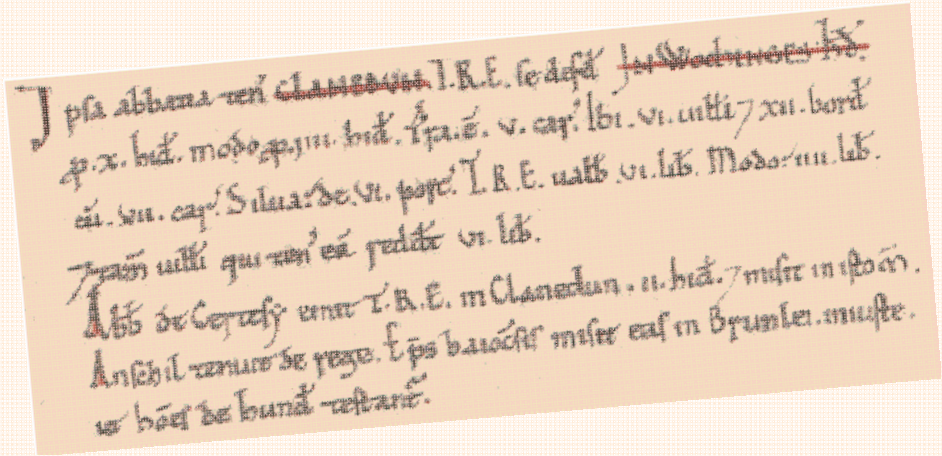 Ipsa abbatia ten̄ CLANEDUN T.R.E. se defđ In Wochinges hđ.
ꝑ.x.hiđ. modo ꝑ.iiii.hiđ. T̄ra.ē.v.car̄. Ibi.vi.uilli 7 xii.borđ
cū.vii.car̄. Silua: de.vi.porc̄. T.R.E. ualƀ.vi.liƀ. Modo: iiii.liƀ.
7 tam̄ uilli qui ten̄ eā redđt vi.liƀ.
Abƀ de Certesy emit T.R.E. in Clanedun.ii.hiđ.7 misit in isto m̄.
Anschil tenuit de rege. Ep̄s baiocsis misit eas in Brunlei.iniuste.
ut hōes de hunđ testant̄.